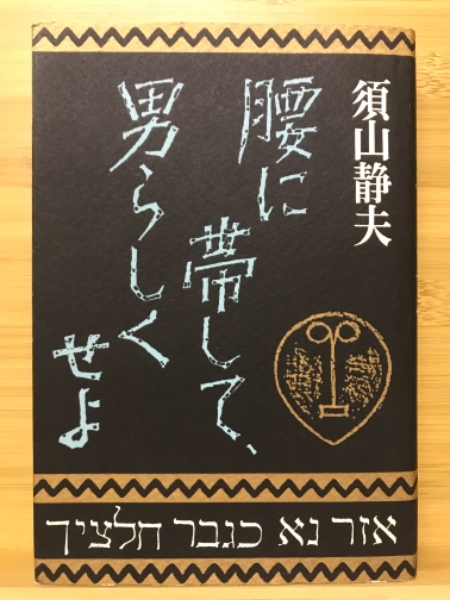 須山静夫
腰に
帯して、
男らしく
せよ
אזר נא כגבר חלציך